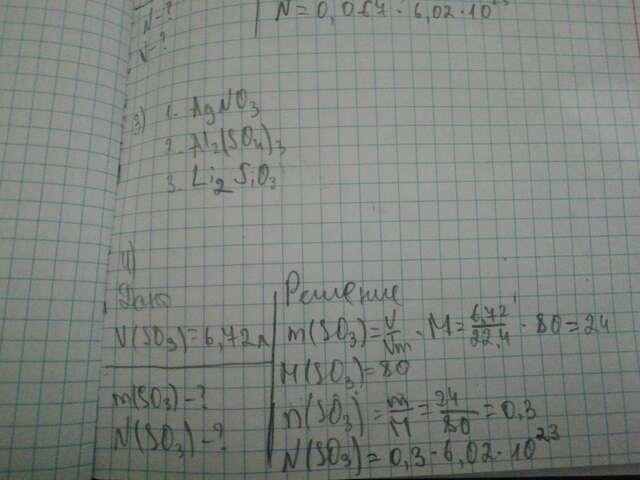 N=?
V=?
N=0,067·6,02·10²³
3) 1. AgNO₃
2. Al₂(SO₄)₃
3. Li₂SiO₃
4)
Дано
V(SO₃)=6,72л
m(SO₃)-?
N(SO₃)-?
Решение
m(SO₃)=V/Vm·M=6,72/22,4·80=24
M(SO₃)=80
n(SO₃)=m/M=24/80=0,3
N(SO₃)=0,3·6,02·10²³